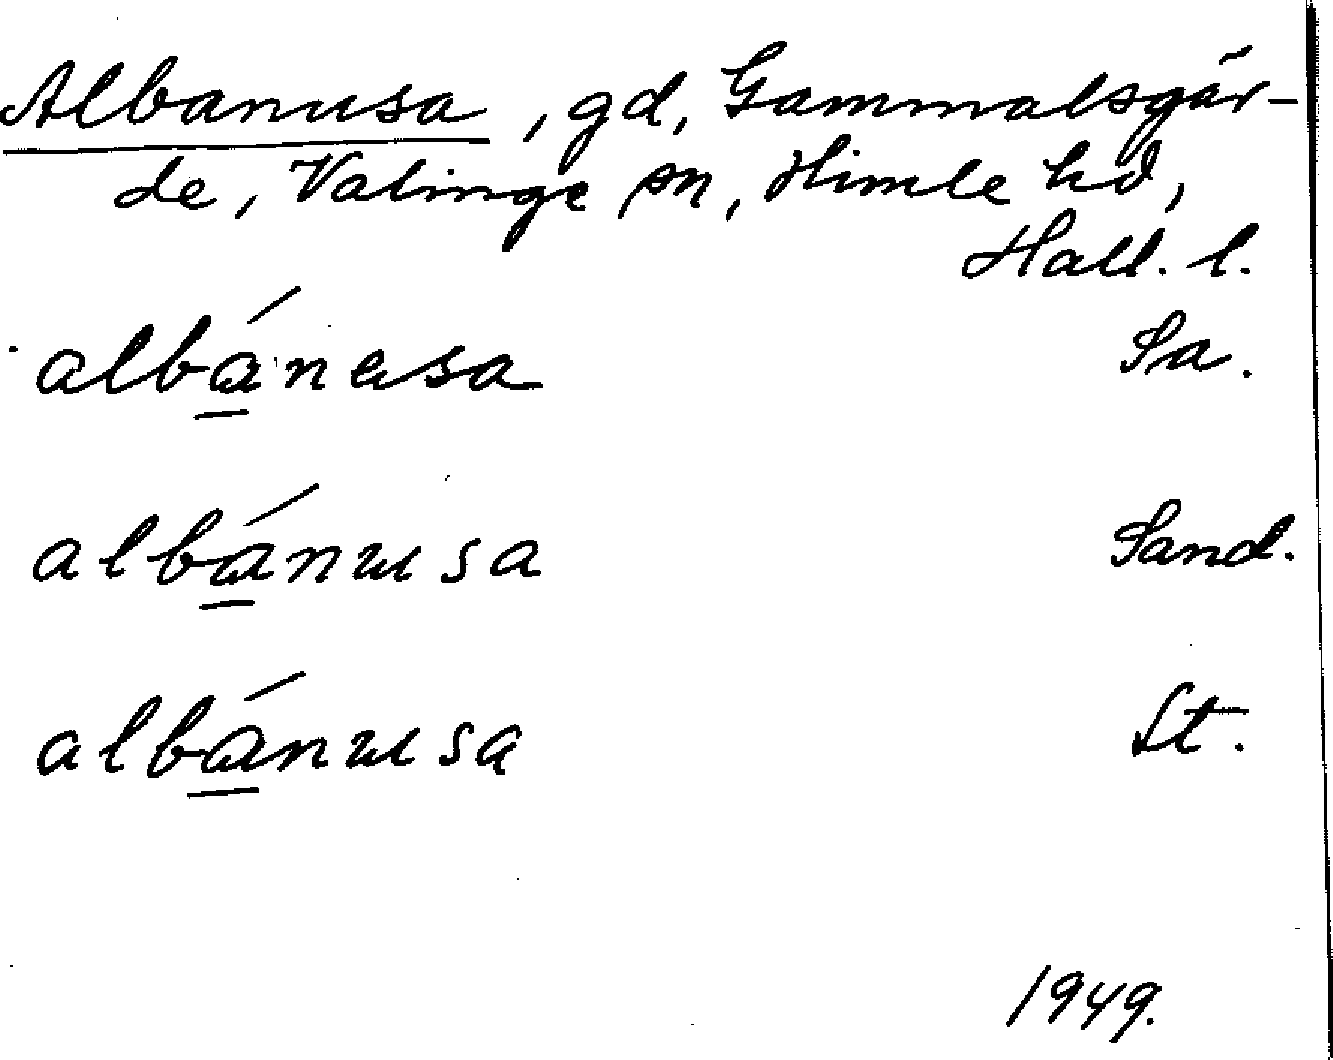 Albanusa, gd, Gammalsgär-
de, Valinge sn, Himle hd,
Hall. l.
albánɯsa Sa.
albánɯsa Sand.
albánɯsa St.
1949.